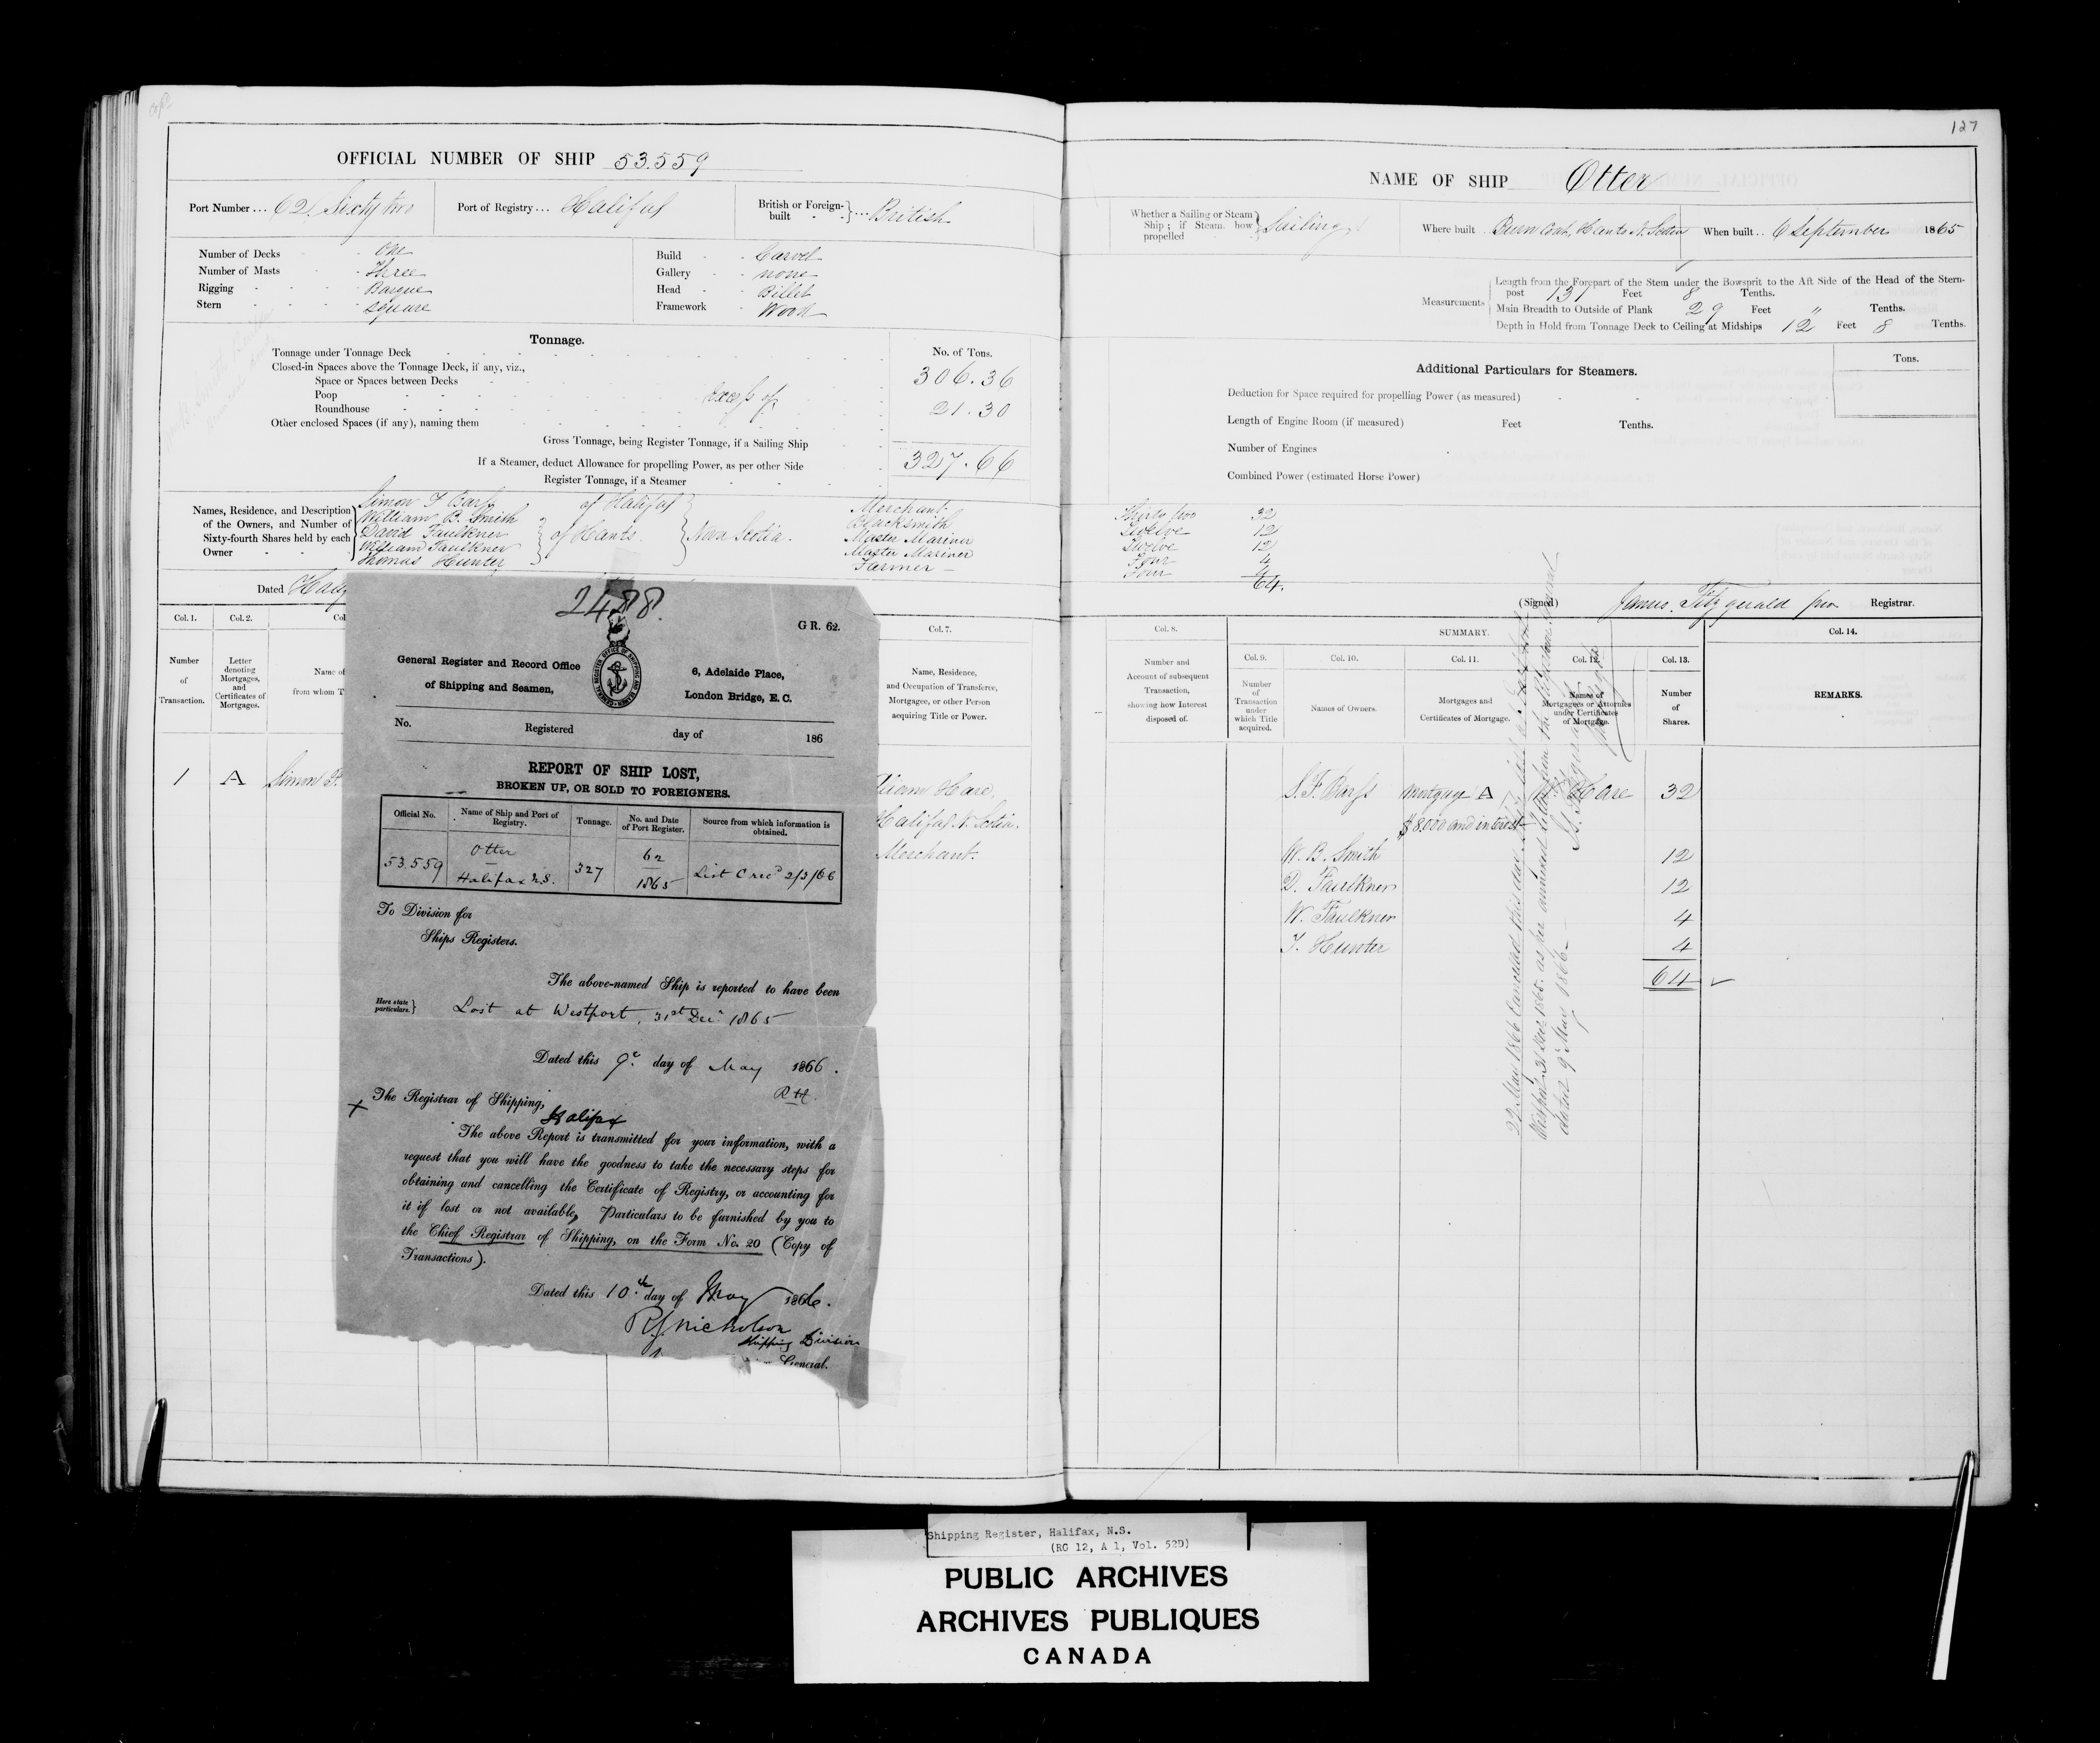 127
OFFICIAL NUMBER OF SHIP 53.559
Port Number ... 62 Sixty two
Port of Registry ... Halifax
British or Foreign-built ... British
Number of Decks - One
Number of Masts - Three
Rigging - Barque
Stern - Square
Build - Carvel
Gallery - none
Head - Billet
Framework - Wood
Tonnage.
No. of Tons.
Tonnage under Tonnage Deck 306.36
Closed-in Spaces above the Tonnage Deck, if any, viz.,
Space or Spaces between Decks
Poop
Roundhouse excess of 21.30
Other enclosed Spaces (if any), naming them
Gross Tonnage, being Register Tonnage, if a Sailing Ship
If a Steamer, deduct Allowance for propelling Power, as per other Side 327.66
Register Tonnage, if a Steamer
Names, Residence, and Description of the Owners, and Number of Sixty-fourth Shares held by each Owner
Simon F Barss of Halifax Merchant
William B. Smith Blacksmith
David Faulkner of Hants Nova Scotia. Master Mariner
William Faulkner Master Mariner
Thomas Hunter Farmer
Dated
Col. 1.
Col. 2.
Col. 7.
Number of Transaction.
Letter denoting Mortgages, and Certificates of Mortgages.
Name of
from whom T
Name, Residence, and Occupation of Transferee, Mortgagee, or other Person acquiring Title or Power.
1 A Simon F.
Hare,
Halifax N. Scotia.
Merchant.
2488.
GR. 62.
General Register and Record Office
of Shipping and Seamen,
6, Adelaide Place,
London Bridge, E. C.
No. Registered day of 186
REPORT OF SHIP LOST,
BROKEN UP, OR SOLD TO FOREIGNERS.
Official No.
Name of Ship and Port of Registry.
Tonnage.
No. and Date of Port Register.
Source from which information is obtained.
53.559
Otter
Halifax N.S.
327
62
1865
List C recd 2/3/66
To Division for
Ships Registers.
The above-named Ship is reported to have been
Here state particulars.} Lost at Westport, 31st Decr 1865
Dated this 9th day of May 1866.
RH.
The Registrar of Shipping,
Halifax
The above Report is transmitted for your information, with a
request that you will have the goodness to take the necessary steps for
obtaining and cancelling the Certificate of Registry, or accounting for
it if lost or not available, Particulars to be furnished by you to
the Chief Registrar of Shipping, on the Form No. 20 (Copy of
Transactions).
Dated this 10th day of May 1866.
R J Nicholson
Shipping Division
General.
NAME OF SHIP Otter
Whether a Sailing or Steam Ship; if Steam, how propelled } Sailing
Where built Burn Coat, Hants N. Scotia
When built .. 6 September 1865
Measurements
Length from the Forepart of the Stem under the Bowsprit to the Aft Side of the Head of the Stern-
post 131 Feet 8 Tenths.
Main Breadth to Outside of Plank 29 Feet " Tenths.
Depth in Hold from Tonnage Deck to Ceiling at Midships 12 Feet 8 Tenths.
Additional Particulars for Steamers.
Tons.
Deduction for Space required for propelling Power (as measured)
Length of Engine Room (if measured) Feet Tenths.
Number of Engines
Combined Power (estimated Horse Power)
Thirty two 32
Twelve 12
Twelve 12
Four 4
Four 4
64.
(Signed) James Fitzgerald pro Registrar.
Col. 8.
SUMMARY.
Col. 14.
Col. 9.
Col. 10.
Col. 11.
Col. 12.
Col. 13.
Number and Account of subsequent Transaction, showing how Interest disposed of.
Number of Transaction under which Title acquired.
Names of Owners.
Mortgages and Certificates of Mortgage.
Names of Mortgagees or Attornies under Certificates of Mortgage.
Number of Shares.
REMARKS.
S. F. Barss Mortgage A W Hare 32
$8.000 and interest
W. B. Smith 12
D. Faulkner 12
W. Faulkner 4
T. Hunter 4
64
22 May 1866 Cancelled this day
Westport 31 Decr 1865. as per annexed letter from the General
dated 9 May 1866
Shipping Register, Halifax, N.S.
(RG 12, A 1, Vol. 52D)
PUBLIC ARCHIVES
ARCHIVES PUBLIQUES
CANADA